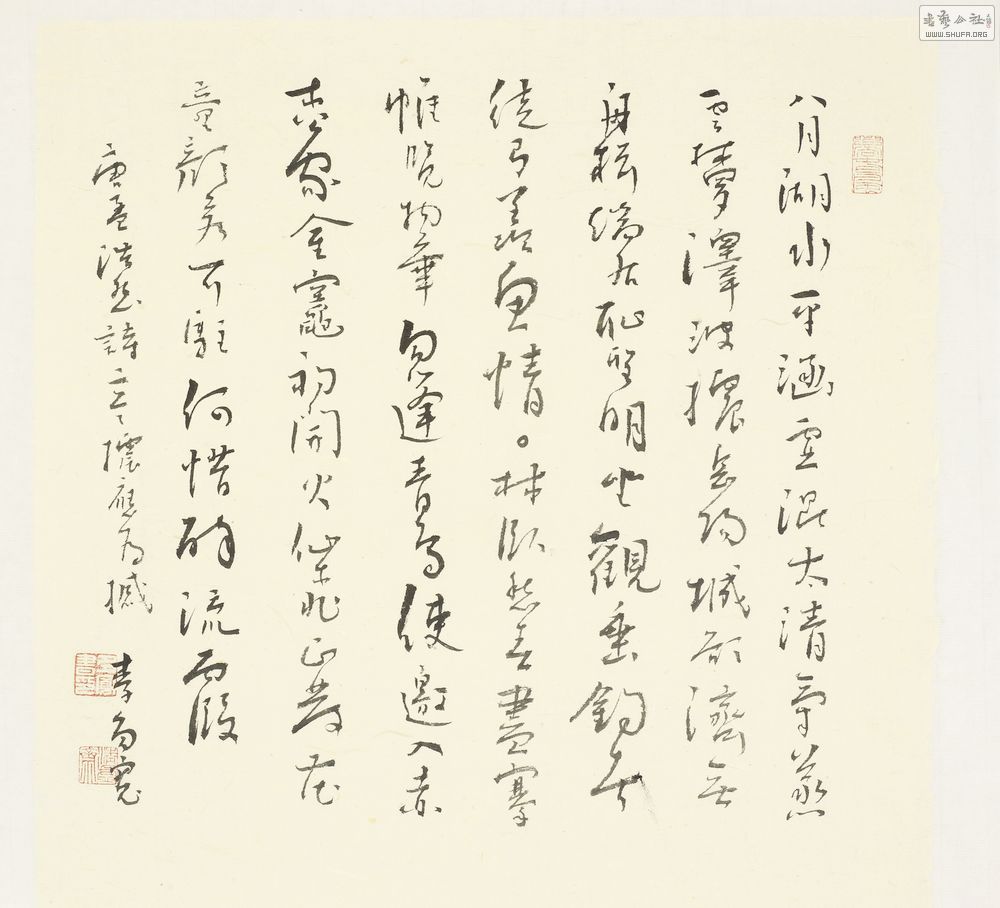 八月湖水平涵虛混太清氣蒸
雲夢澤波岳陽城欲濟無
舟楫端居恥聖明坐觀垂釣者
徒有羨魚情。林臥愁春盡搴
帷覽物華忽逢青鳥使邀入赤
松家金竈初開火仙桃正發花
童顏若可駐何惜醉流霞
唐孟浩然詩二首應為撼
李寬
書藝公社
WWW.SHUFA.ORG